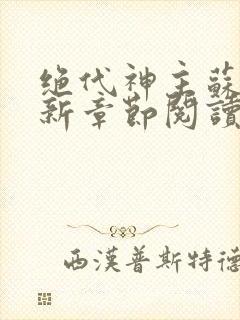 绝代神主蘇
新章節閱讀
西漢普斯特德